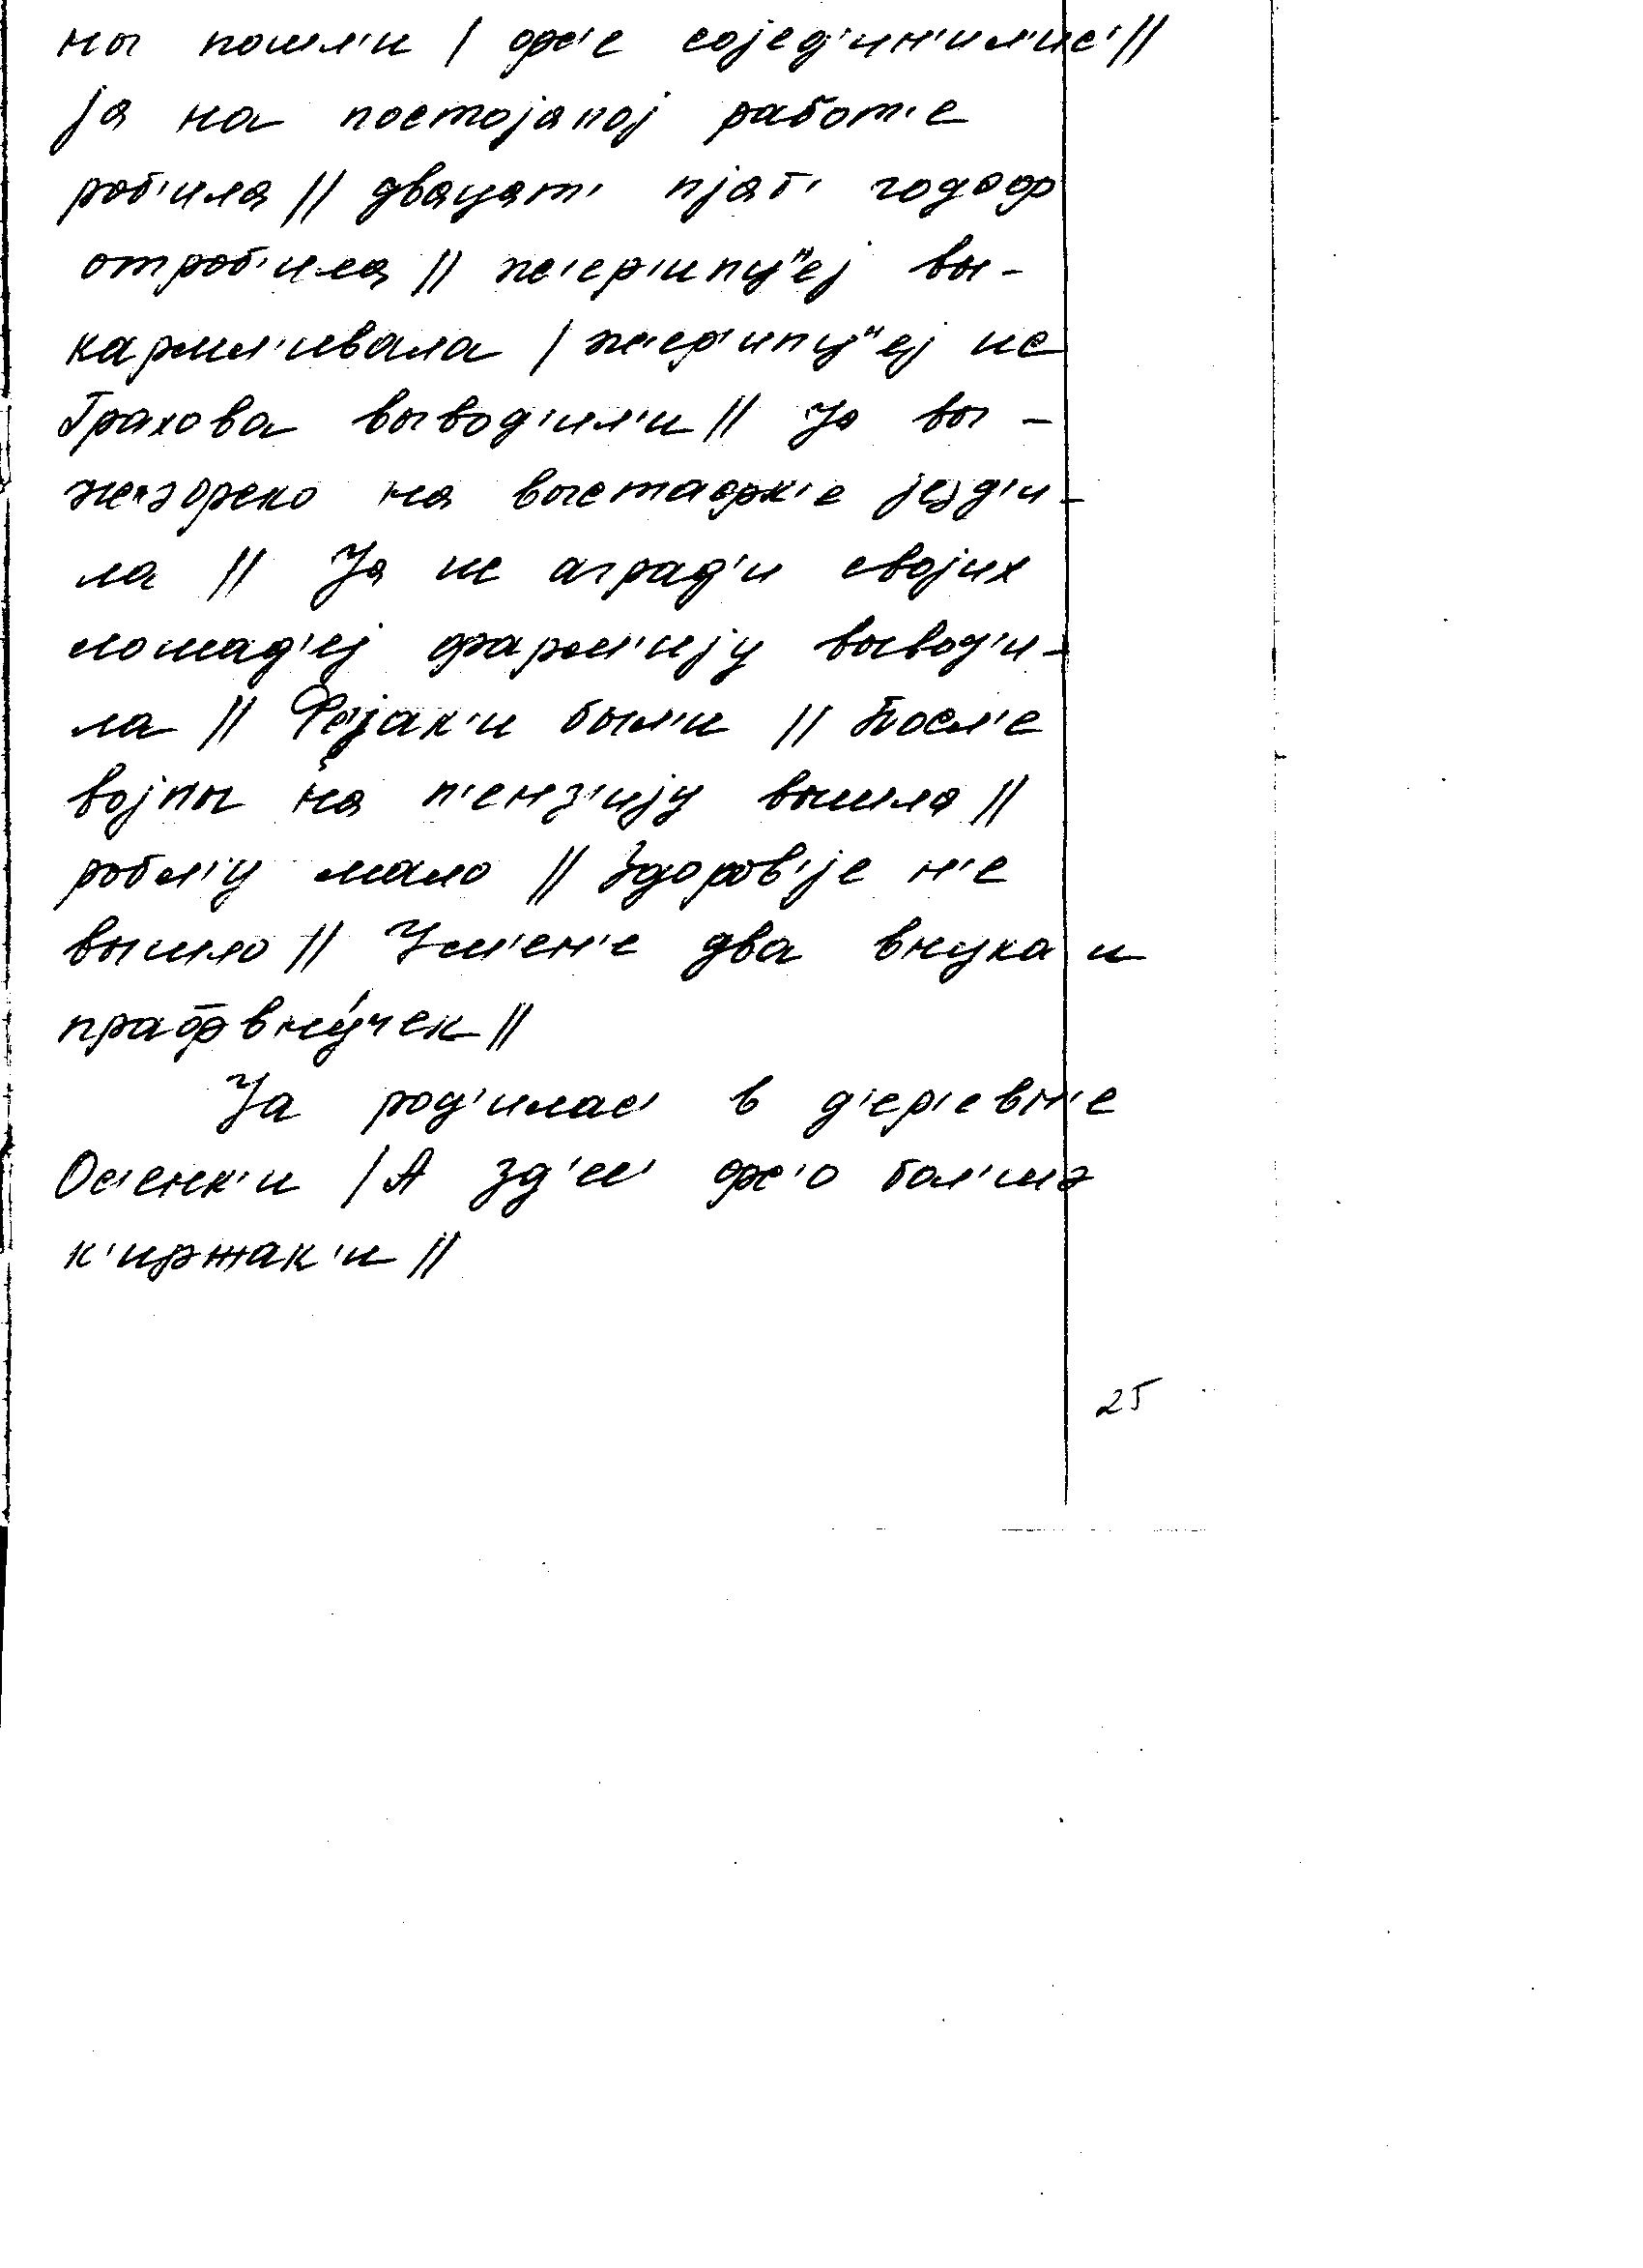 ны пошл'и / фс'е сојед'ин'ил'ис' //
Ја на постојаной работ'е
роб'ила // двацат' пјат' годоф
отроб'ила // ж'ер'ипц"еј вы-
кармл'ивала / ж'ер'ипц"еј ис
Грахова вывод'ил'и // Ја вы-
на выстафк'е језд'и-
ла // Ја ис аград'и својих
лошад'еј вывод'и-
ла // был'и // Посл'е
војны на п'енз'ију вышла //
робл'у мало // Здоров'је н'е
вышло // Ум'ен'е два внука и
правну́чек //
Ја род'илас' в д'ер'евн'е
Ос'енк'и / А зд'ес' фс'о бол'шэ
к'иржак'и //
25